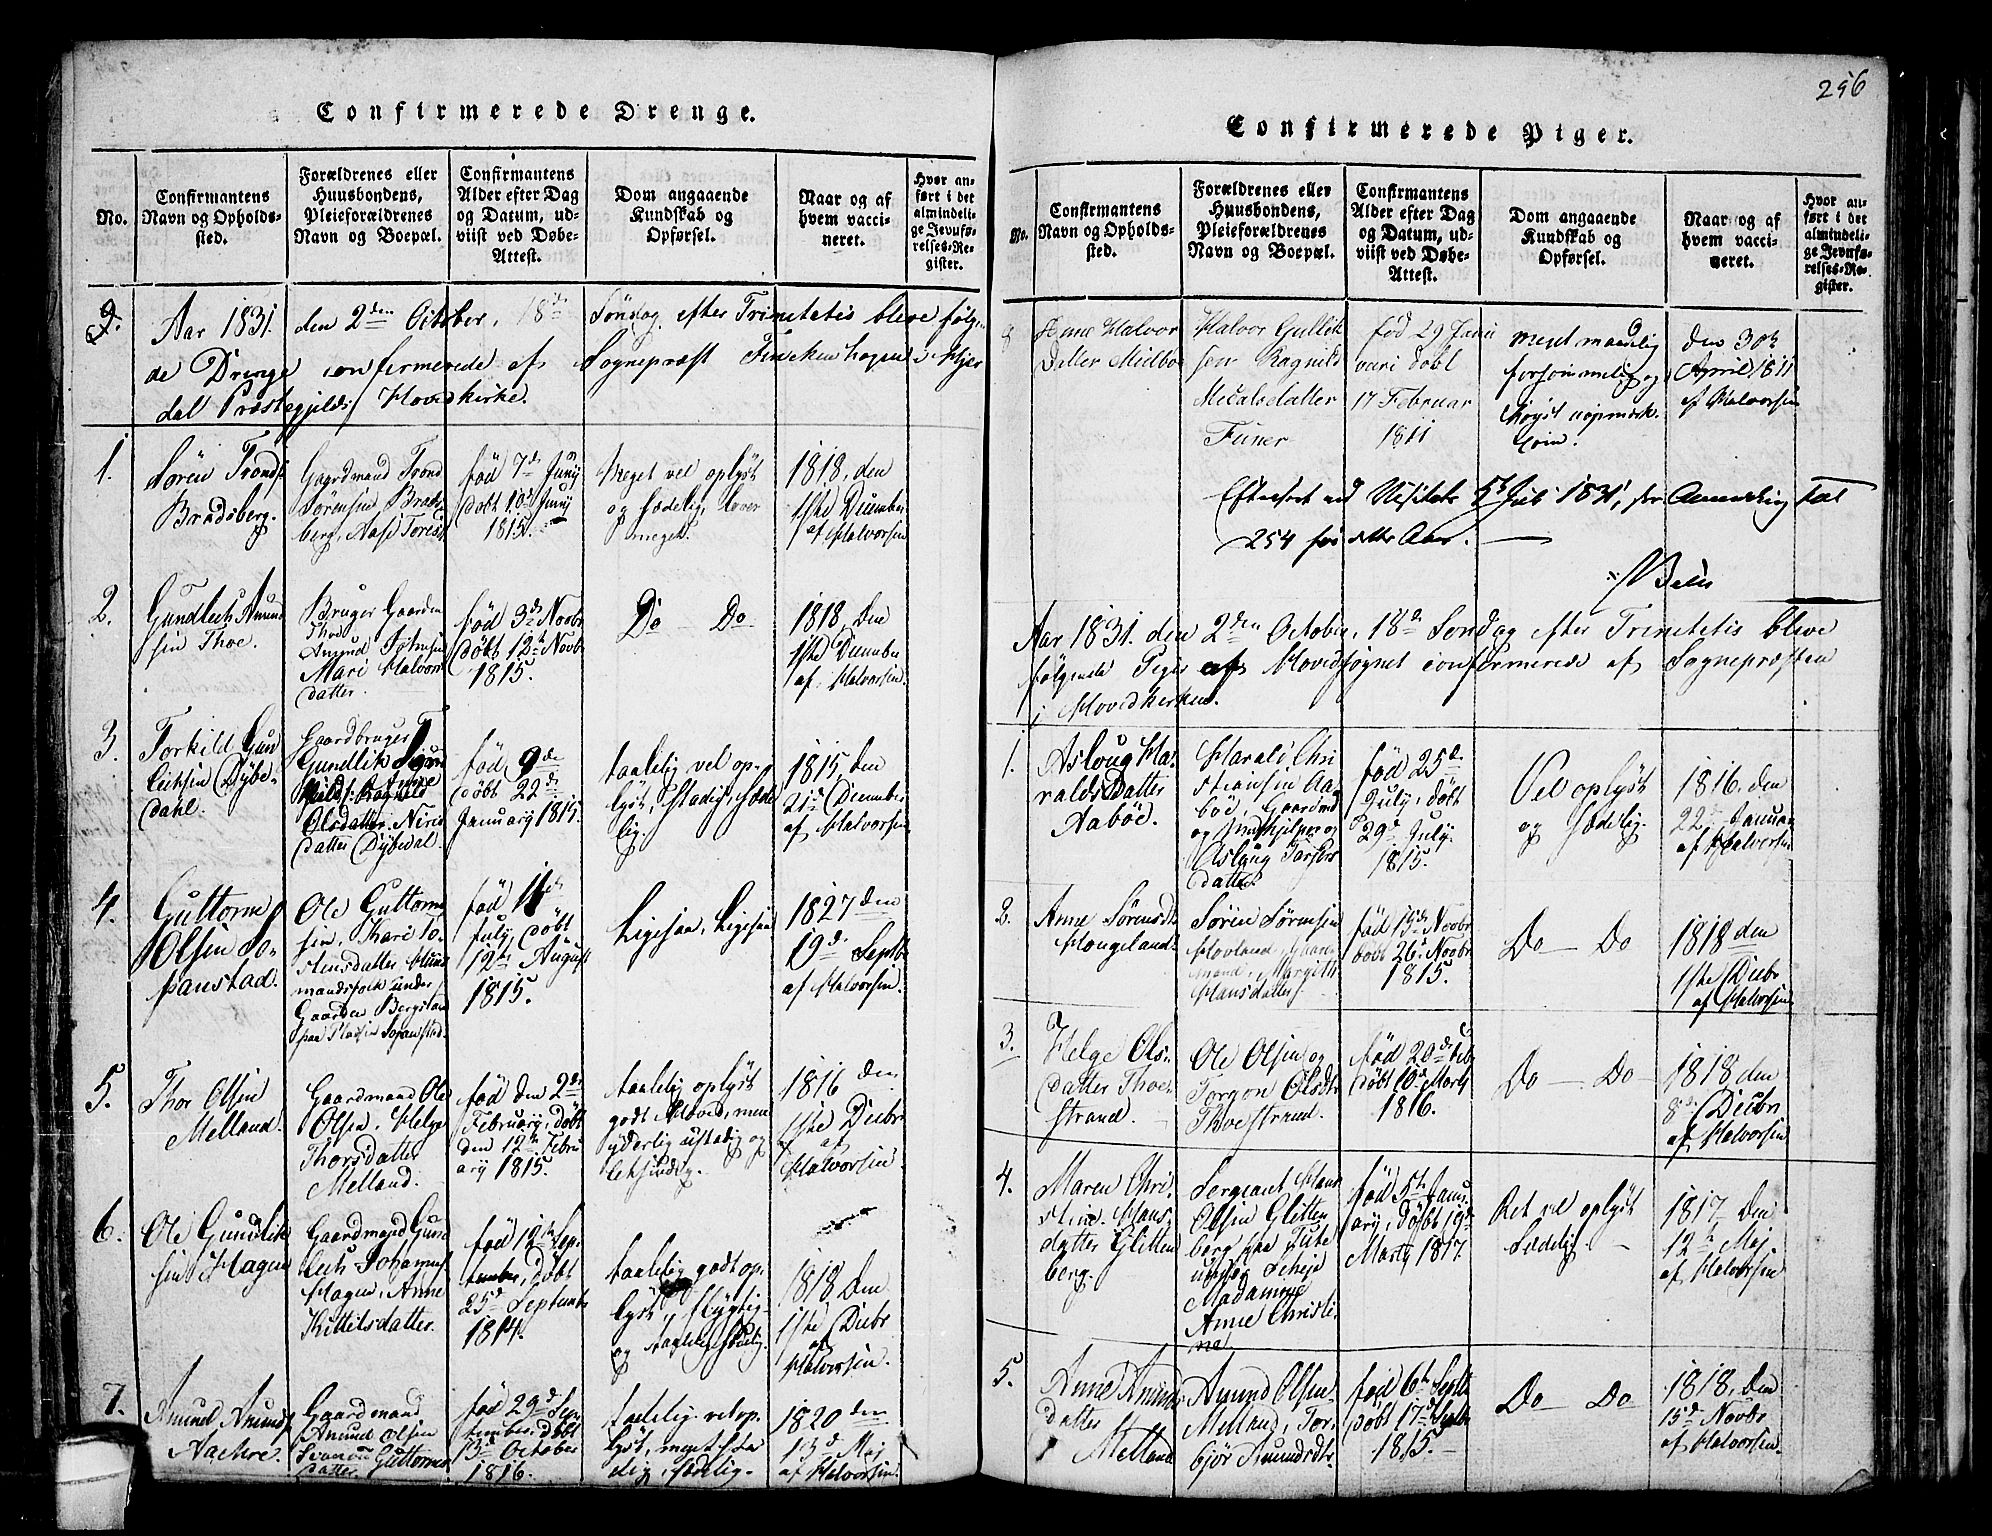 Confirmerede Drenge.
No.
Confirmantens
Navn og Opholds-
sted.
Forældrenes eller
Huusbondens,
Pleieforældrenes
Navn og Boepæl.
Confirmantens
Alder efter Dag
og Datum, ud-
viist ved Døbe-
Attest.
Dom angaaende
Kundskab og
Opførsel.
Naar og af
hvem vacci-
neret.
Hvor an-
ført i det
almindeli-
ge Jevnfø-
relses-Re-
gister.
Aar 1831. den 2den October, 18de Søndag efter Trinetetis bleve følgen
de Drenge confermerede af Sognepræst Finckenhagen i Hjer
dal Præstegjelds Hovedkirke.
1.
Sören Tronds
Bradsberg.
Gaardmand Trond
Sörensen Brads
berg, Aase Tores
fød 7de Juny
døbt 10de Juny
1815.
Meget vel oplyst
og sædelig, lover
meget.
1818, den
1ste December
af Halvorsen
2.
Gundleck Amund
sen Thoe.
Bruger Gaarden
Thoe
Amund
Mari Halvors
datter.
fød 3de Novbr
døbt 12te Novbr
1815.
Do Do
1818, Den
1ste December
af Halvorsen.
3.
Torkild Gun
lecksen Dybe-
dahl.
Gaardbruger
Gundlik
Olsdatter
datter Dybedal.
fød 9de
døbt 22de
January 1815.
taalelig vel op-
lyst, stadig, sæde
lig.
1815, den
21de December
af Halvorsen
4.
Guttorm
Olsen So-
panstad.
Ole Guttorm
sen, Kari To-
stensdatter, Huus
mandsfolk under
Gaarden Bergstan
paa Pladsen Sopanstad.
fød 11te
July, døbt
12te August
1815.
Ligesaa, Ligesaa
1827 den
19de Septbr
af Halvorsen.
5.
Thor Olsen
Melland.
Gaardmand Ole
Olsen, Helge
Thorsdatter
Melland.
fød den 2den
February, døbt
den 12te Febru
ary 1815.
taalelig oplyst
godt Hoved, men
yderlig ustadig og
letsindig.
1816 den
1ste Decbr
af
Halvorsen.
6.
Ole Gundlik
sen Hagen
Gaardmand Gund
leck Johannes
Hagen, Anne
Kittilsdatter.
fød 19de Sep-
tember, døbt
25de Septemb
1814.
taalelig godt op-
lyst, flygtig
og taalelig sædelig.
1818 den
1ste Decbr
af
Halvorsen.
7.
Amund Amunds
Aackre.
Gaardmand
Amund Olsen
datter Guttorms
fød 29de Sep
tember, døbt
13de October
1816.
taalelig vel op-
lyst, meget sta
dig, sædelig.
1820 den
13de Maj
af Halvorsen.
256
Confirmerede Piger.
No.
Confirmantens
Navn og Opholds-
sted.
Forældrenes eller
Huusbondens,
Pleieforældrenes
Navn og Boepæl.
Confirmantens
Alder efter Dag
og Datum, ud-
viist ved Døbe-
Attest.
Dom angaaende
Kundskab og
Opførsel.
Naar og af
hvem vacci-
neret.
Hvor an-
ført i det
almindeli-
ge Jevnfø-
relses-Re-
gister.
8
Anne Halvor
datter Midboe
Halvor Gullik
sen Ragnild
Mecalsdatter
fød 29 Janu
vari døbt
17 Februar
1811
meget maadelig
forsømmelig og
høyst uopmærk-
som.
den 30te
April 1811
af Halvorsen
Efterseet ved Visitats 5te Juli 1831, for Anmærkning
254 for dette Aar.
Aar 1831. den 2den October, 18de Søndag efter Trinetetis bleve
følgende Piger af Hovedsognet confermerede af Sognepræsten
i Hovedkirken.
1.
Asloug Ha-
raldsdatter
Aabøe.
Harald Chri
stiansen Aa
bøe, Gaardmd
og Smedhjelper og
Aslaug Tarjers
datter
fød 25de
July, døbt
29de July
1815.
Vel oplyst
og sædelig.
1816. den
22de Januar
af Halvorsen
2.
Anne Sørensdt
Hougeland
Søren Sørensen
Hovland, Huus-
mand, Margith
Hansdatter
fød 15de Novbr
døbt 26de Novbr
1815.
Do Do
1818 den
1ste Decbr
af Halvorsen
3.
Helge Ols-
datter Thoe-
strand.
Ole Olsen og
Torgon Olsdtr
Thoestrand.
fød 20de Feb
døbt 10de Marts
1816.
Do Do
1818 den
8de Decbr
af Halvorsen
4.
Maren Chri-
stine Hans-
datter Glitten
berg.
Sergeant Hans
Olsen Glitten
berg paa Tute
Madamme
Anne Christi
ne
fød 5te Janu-
ary, døbt 19de
Marty 1817.
Ret vel oplyst
Sædelig
1817, den
12te Maj
af Halvorsen
5.
Anne Amunds
datter
Melland
Amund Olsen
Melland, Tor-
bjør Amundsdtr.
fød 6te Septb
døbt 17de Septbr
1815.
Do Do
1818, den
15de Novbr
af Halvorsen.